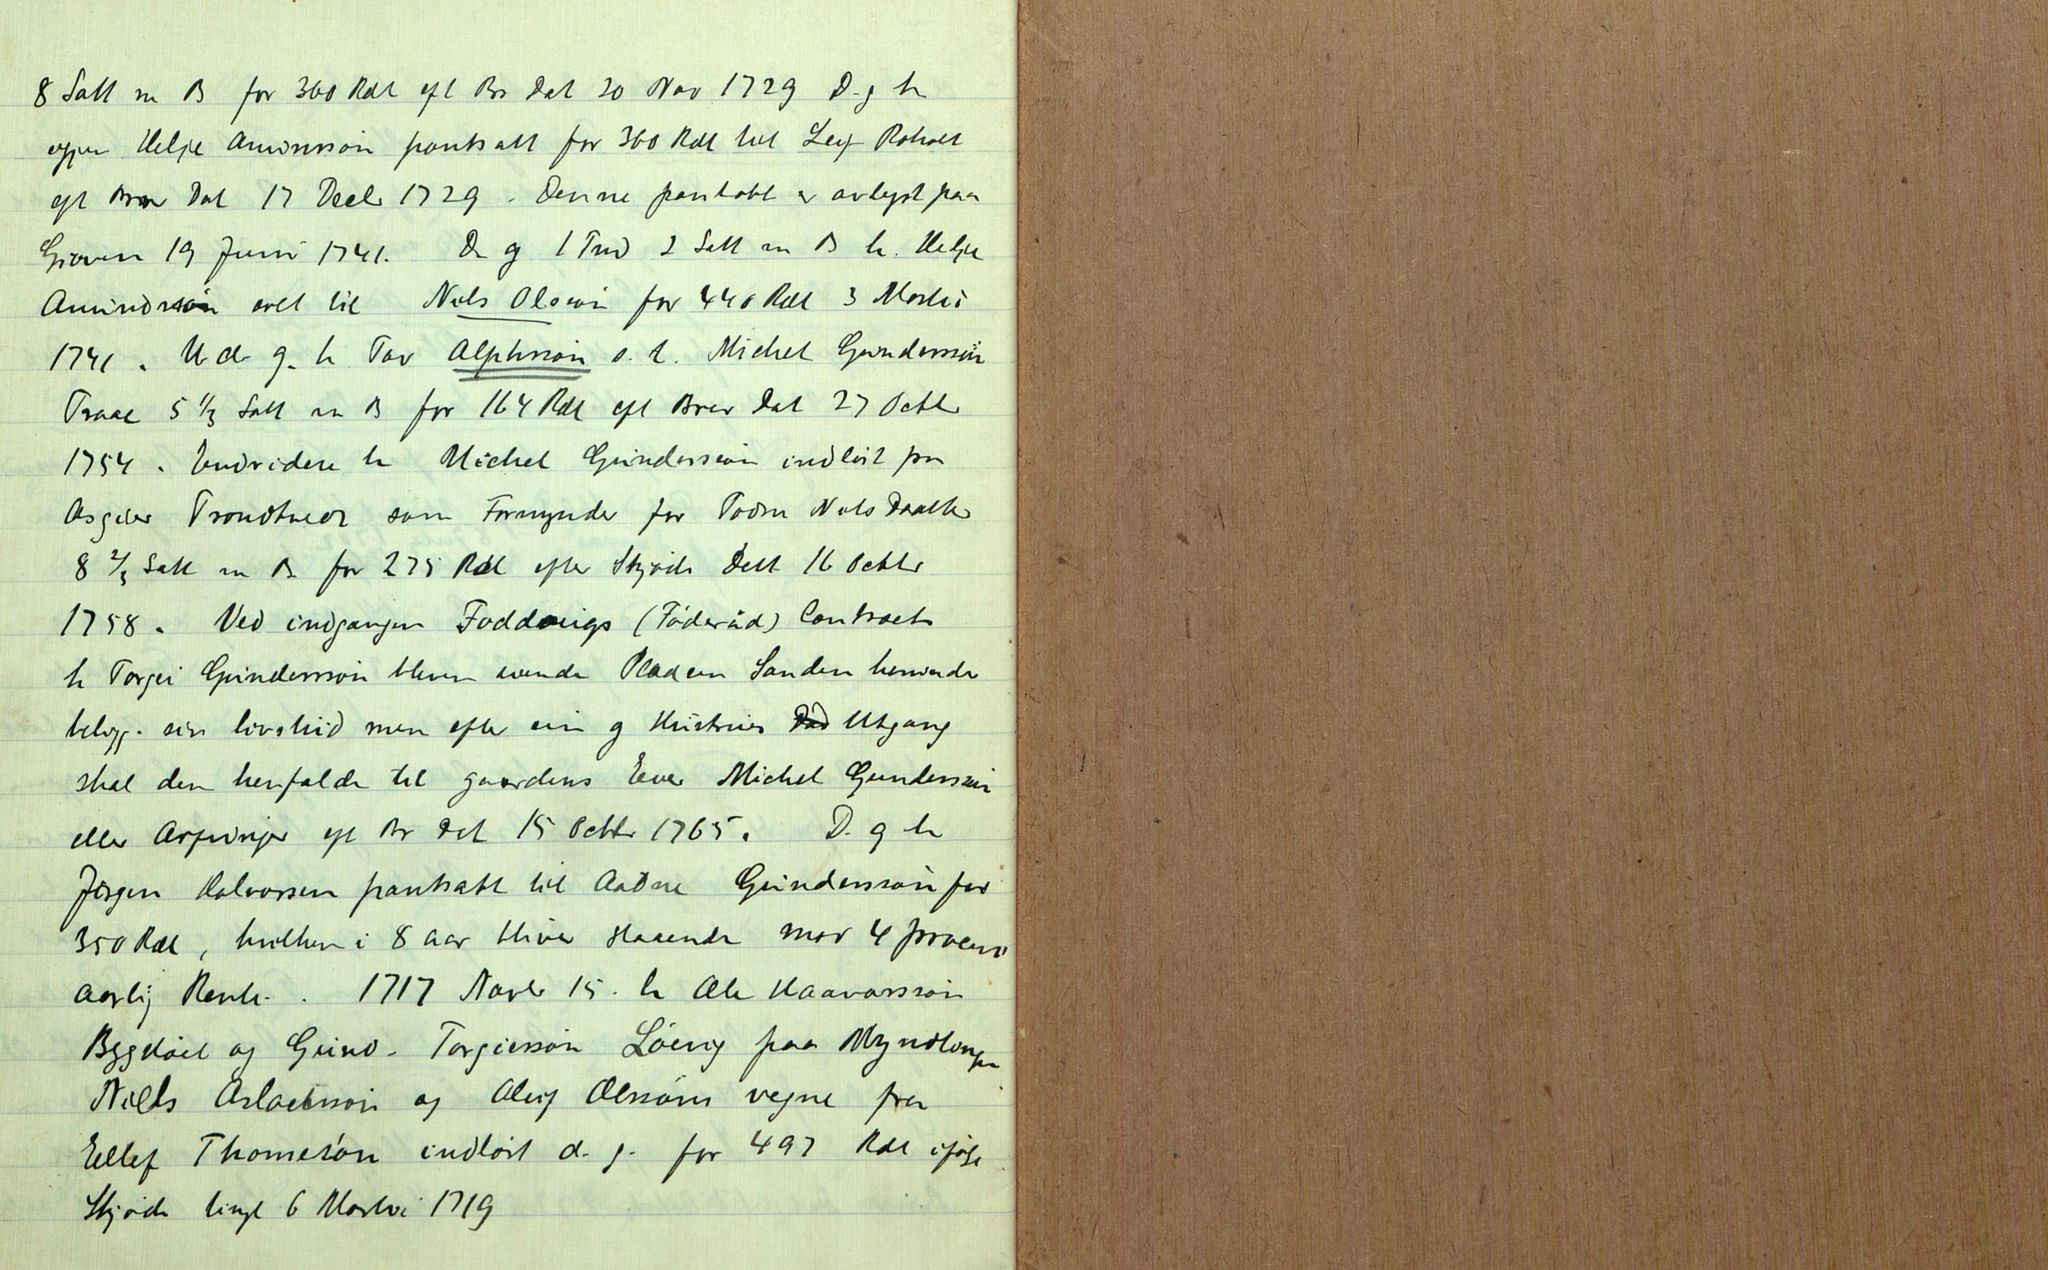 8 Sætt m B for 360 Rdl eft Br Dat 20 Nov 1729 D. g h
igjen Helje pantsatt for 360 Rdl til Leif
eft Brev Dat 17 Decb 1729. Denne pantobl er avlyst paa
Gjæven 19 Juni 1741. D g 1 Tnd 2 Sett m B h. Helje
solt til Niels Olsøn for 440 Rdl 3 Martii
1741. U d g. h Tov Alphssøn s. t. Michel Gundersøn
Traae 5 1/3 Sett m B for 164 Rdl eft Brev Dat 27 Octbr
1754. Endvidere h Michel Gundersøn indløst fra
Asgier som Formynder for Niels Daatter
8 2/3 Sett m B for 275 Rdl efter Skjøde Dat 16 Octbr
1758. Ved indgangen (Föderåd) Contract
h Torgei Gundersøn bleven Pladsen Sanden
belagt. sin livstid men efter sin g Hustrues Utgang
skal den henfalde til gaardens Eier Michel Gundersøn
eller Arfvinger eft Br Dat 15 Octbr 1765. D. g h
Jörgen Halvorsen pantsatt til Aadne Gundersøn for
350 Rdl, hvilken i 8 aar bliver staaende mod 4 procent
aarlig Rente. 1717 Novbr 15. h Ole Haavorssøn
og Gund. Torgierssøn paa Myndlingen
Niels Aslacssøn og Oluf Olessøns vegne fra
Ellef Thomesøn indløst d. g. for 497 Rdl ifølge
Skjøde tingl 6 Martii 1719